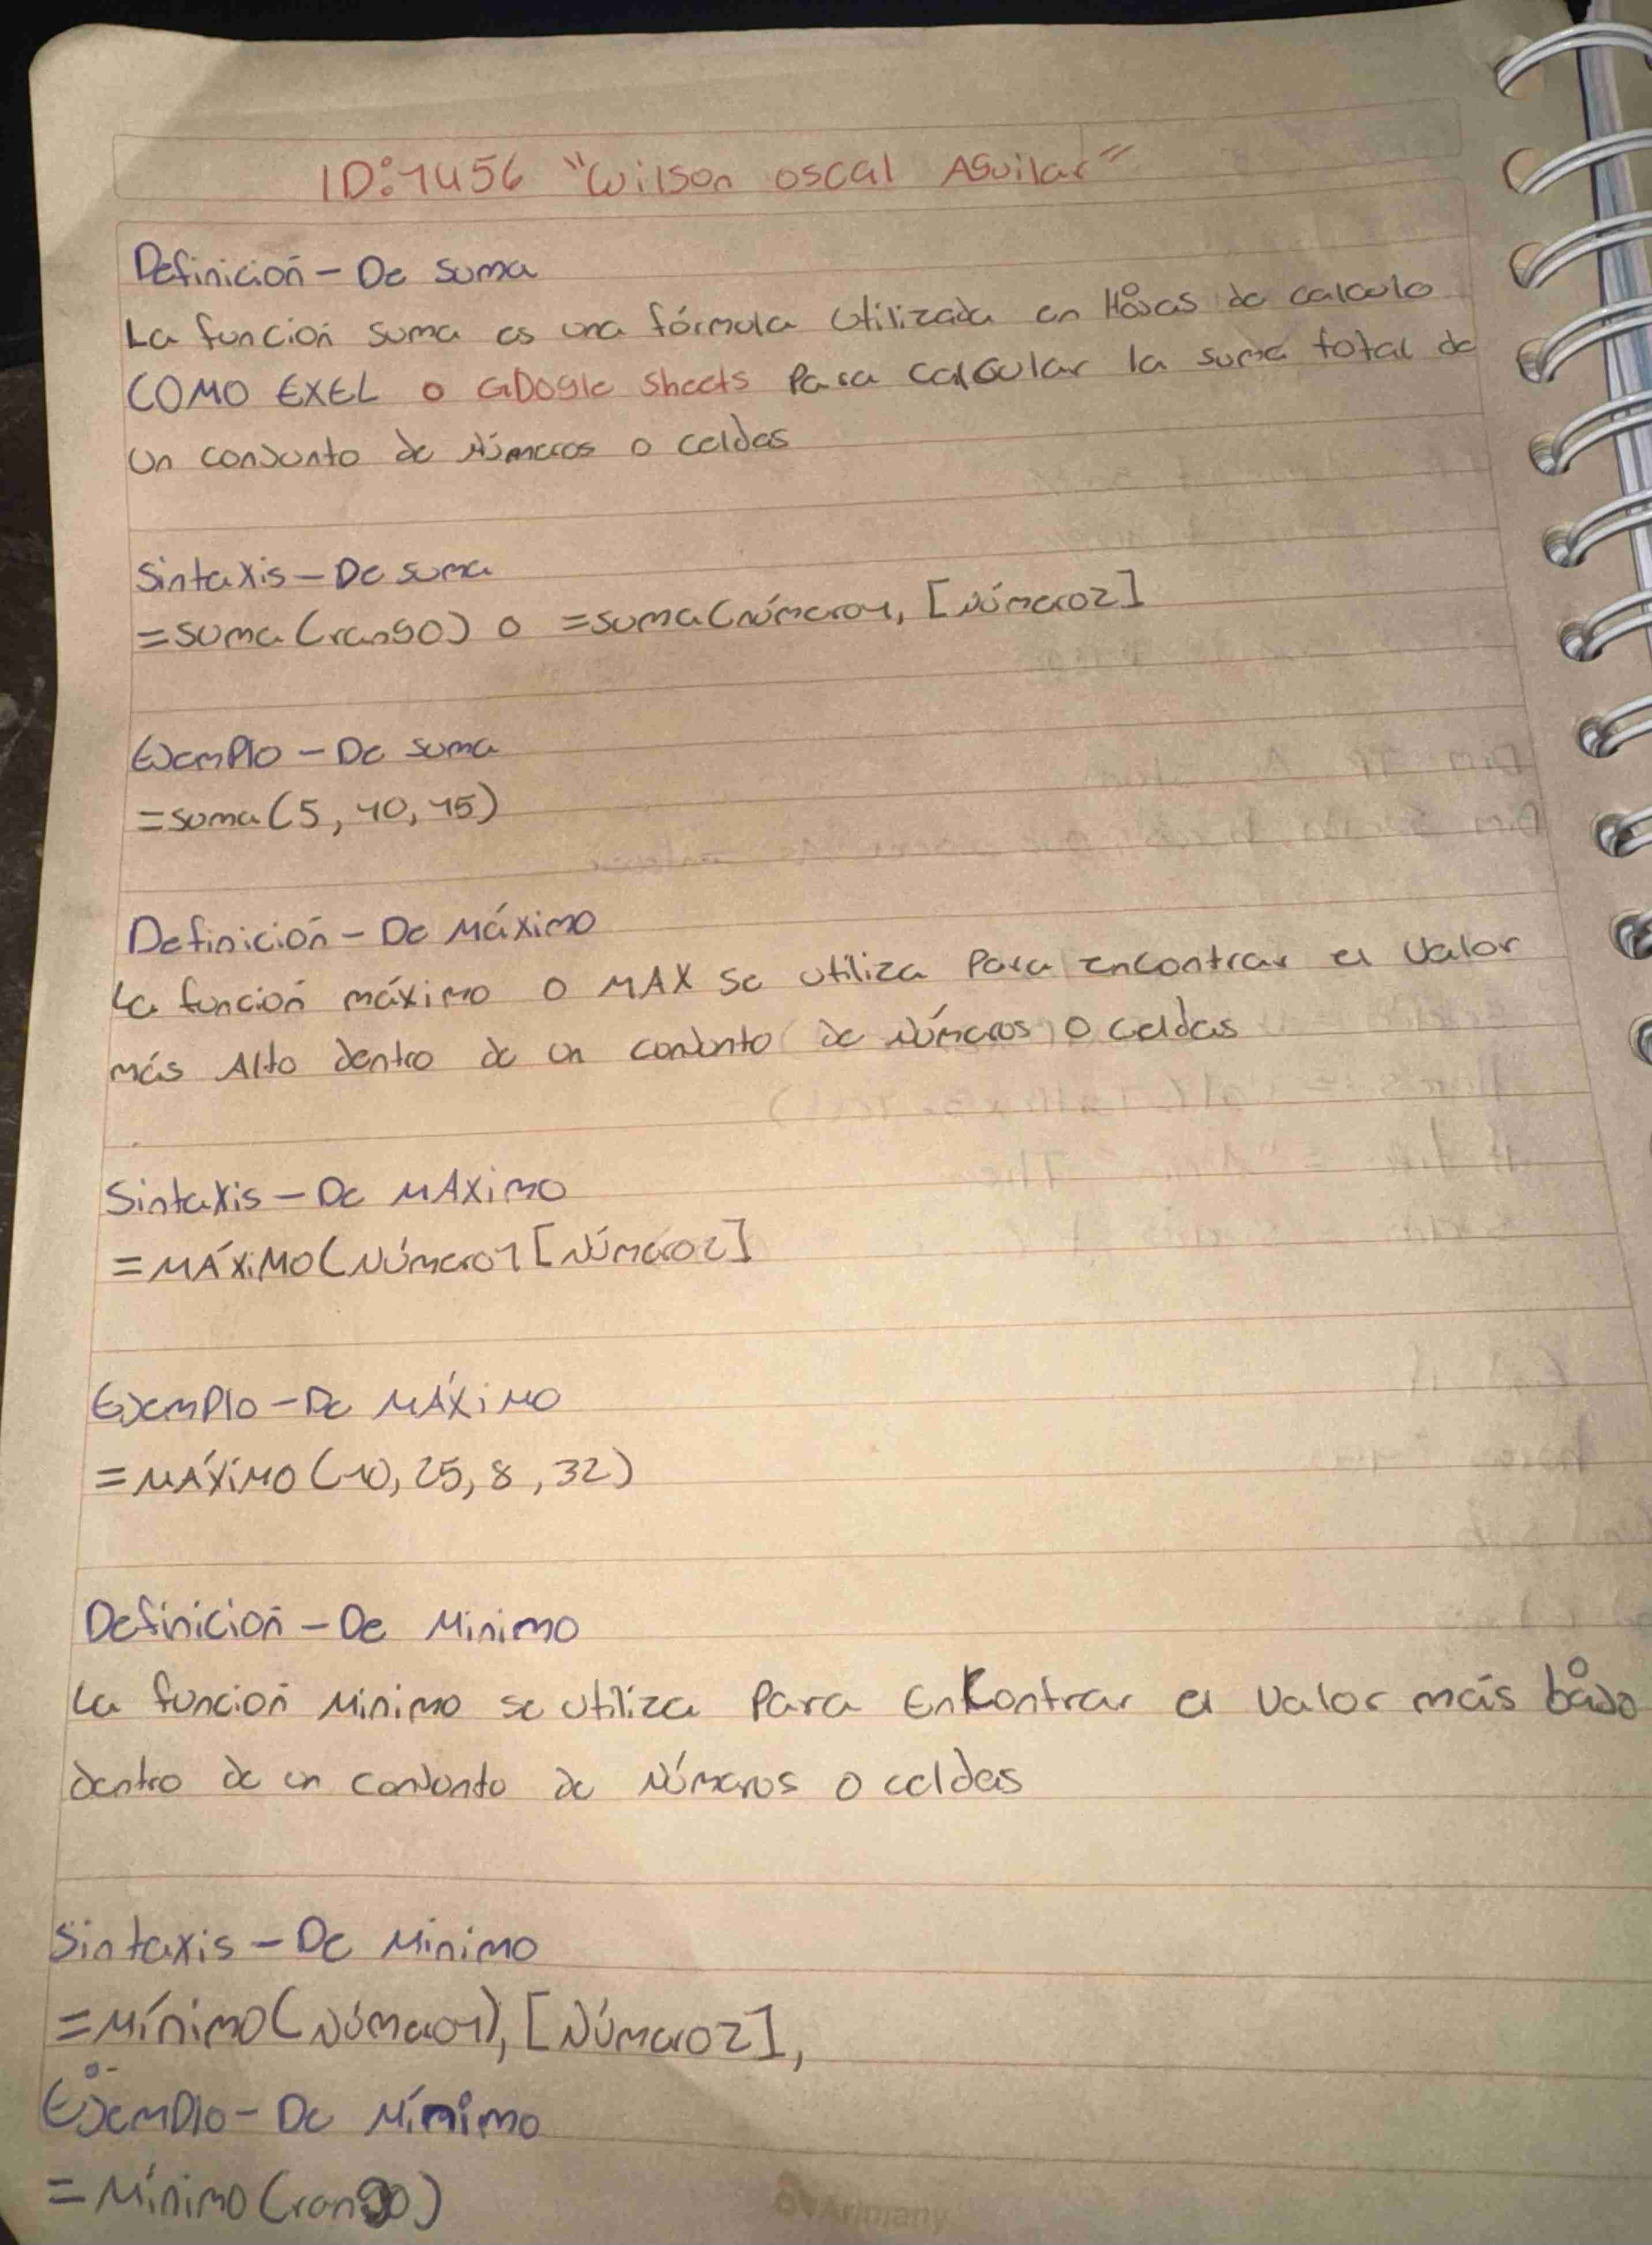 ID:1456 "Wilson oscal Aguilar"
Definición - De suma
La función suma es una fórmula Utilizada en Hojas de calculo
COMO EXEL o GOOgle Sheets Para calcular la suma total de
Un conjunto de Números o celdas
Sintaxis - De suma
=suma(rango) o =suma(Número1, [Número2]
Ejemplo - De suma
=suma(5, 10, 15)
Definición - De Máximo
La función máximo o MAX se utiliza Para encontrar el Valor
más Alto dentro de un conjunto de Números o celdas
Sintaxis - De MAXimo
=MÁXiMO(Número1 [Número2]
Ejemplo - De MÁXiMO
=MÁXiMO(10, 25, 8, 32)
Definición - De Minimo
La función Minimo se utiliza Para Encontrar el Valor más bajo
dentro de un conjunto de Números o celdas
Sintaxis - De Minimo
=Mínimo(Número1), [Número2],
Ejemplo - De Mínimo
=Mínimo(rango)
Arimany